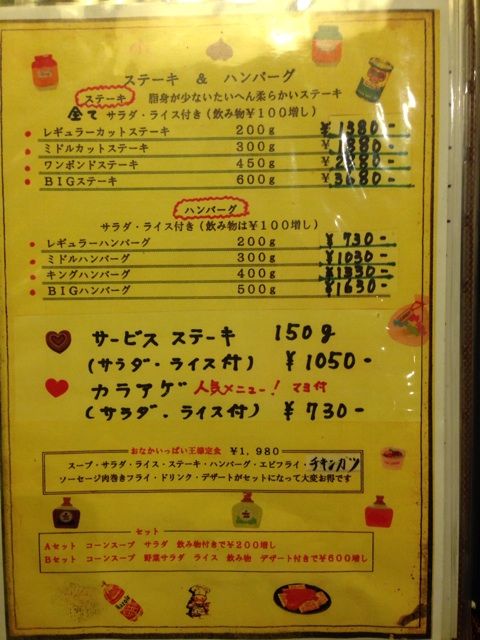 ステーキ & ハンバーグ
ステーキ 脂身が少ないたいへん柔らかいステーキ
全て サラダ・ライス付き(飲み物¥100増し)
レギュラーカットステーキ 200g ¥1380-
ミドルカットステーキ 300g ¥1880-
ワンポンドステーキ 450g
BIGステーキ 600g ¥3680-
ハンバーグ
サラダ・ライス付き(飲み物は¥100増し)
レギュラーハンバーグ 200g ¥730-
ミドルハンバーグ 300g ¥1030-
キングハンバーグ 400g ¥1330-
BIGハンバーグ 500g ¥1630-
サービス ステーキ 150g
(サラダ・ライス付) ¥1050-
カラアゲ 人気メニュー! マヨ付
(サラダ・ライス付) ¥730-
おなかいっぱい王様定食 ¥1,980
スープ・サラダ・ライス・ステーキ・ハンバーグ・エビフライ・チキンカツ
ソーセージ肉巻きフライ・ドリンク・デザートがセットになって大変お得です
セット
Aセット コーンスープ サラダ 飲み物付きで¥200増し
Bセット コーンスープ 野菜サラダ ライス 飲み物 デザート付きで¥600増し